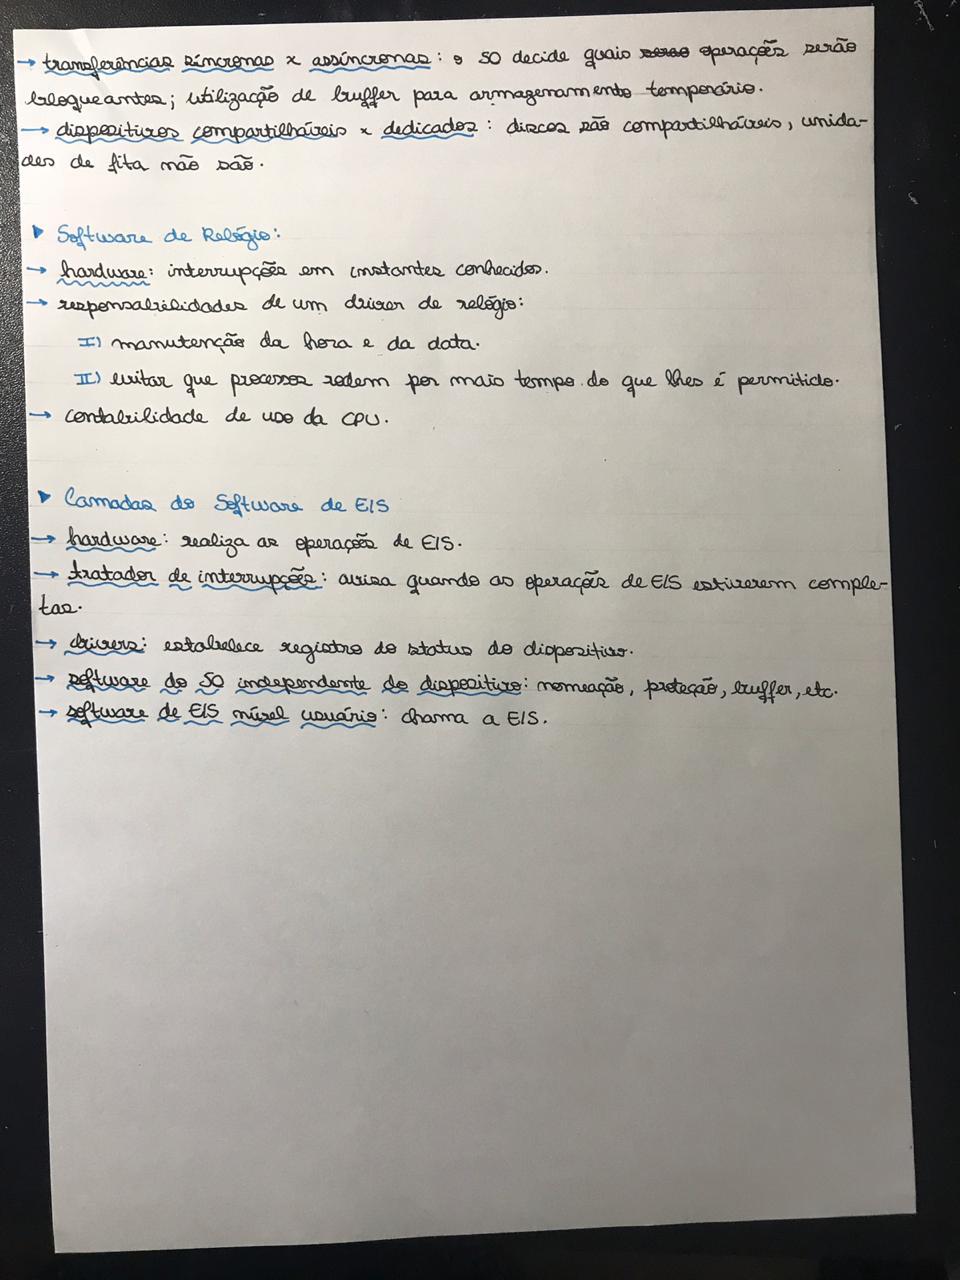 → transferências síncronas x assíncronas: o SO decide quais operações serão
bloqueantes; utilização de buffer para armazenamento temporário.
→ dispositivos compartilháveis x dedicados: discos são compartilháveis, unida-
des de fita não são.
▶ Software de Relógio:
→ hardware: interrupções em instantes conhecidos.
→ responsabilidades de um driver de relógio:
I) manutenção da hora e da data.
II) evitar que processos rodem por mais tempo do que lhes é permitido.
→ contabilidade de uso da CPU.
▶ Camadas do Software de E/S
→ hardware: realiza as operações de E/S.
→ tratador de interrupções: avisa quando as operações de E/S estiverem comple-
tas.
→ drivers: estabelece registro do status do dispositivo.
→ software do SO independente do dispositivo: nomeação, proteção, buffer, etc.
→ software de E/S nível usuário: chama a E/S.